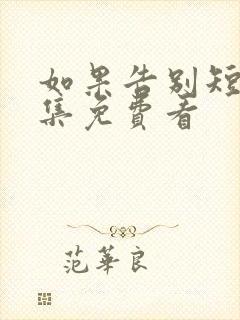 如果告别短
集免费看
范华良